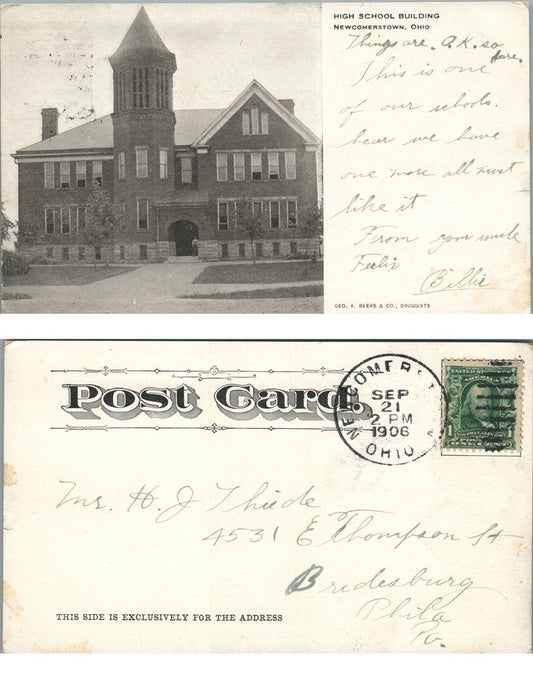 HIGH SCHOOL BUILDING
NEWCOMERSTOWN, OHIO
Things are. O.K. so
fare.
This is one
of our schools.
hear we have
one more all most
like it
From your uncle
Feelix
Billie
GEO. A. BEERS & CO., DRUGGISTS
Post Card.
NEWCOMERST
SEP
21
2 PM
1906
OHIO
1
Mr. H. J. Thiede
4531 E Thompson St
Bridesburg
Phila
Pa.
THIS SIDE IS EXCLUSIVELY FOR THE ADDRESS